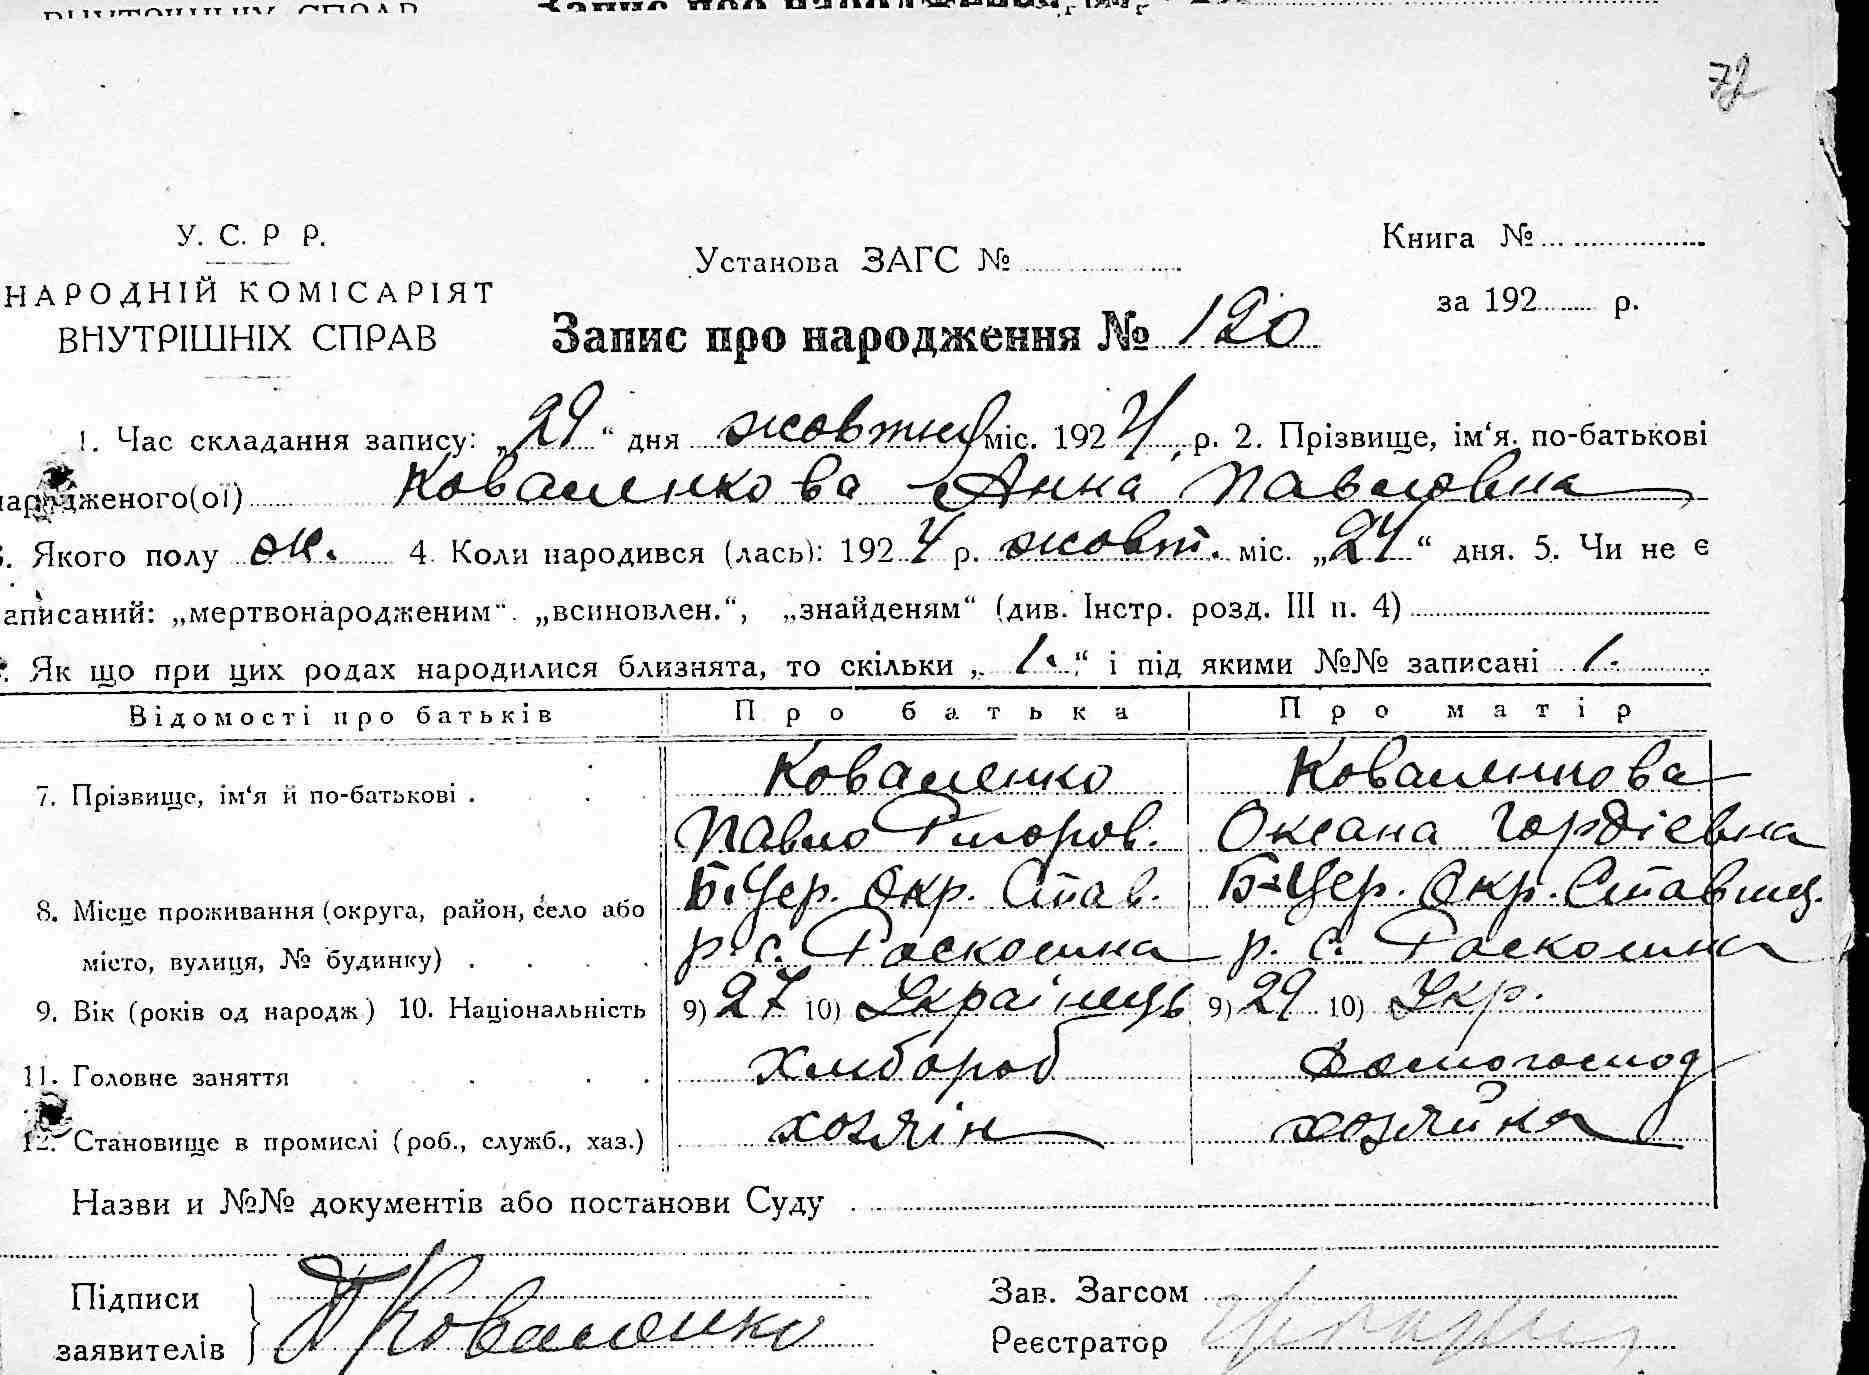 ВНУТРІШНІХ СПРАВ Запис про народження
72
У. С. Р Р.
НАРОДНІЙ КОМІСАРІЯТ
ВНУТРІШНІХ СПРАВ
Установа ЗАГС №
Книга №
за 192 р.
Запис про народження № 120
1. Час складання запису: „29“ дня жовтня міс. 1924 р. 2. Прізвище, ім‘я. по-батькові
народженого(ої) Коваленкова Анна Павловна
Якого полу ж. 4. Коли народився (лась): 1924 р. жовт. міс. „24“ дня. 5. Чи не є
записаний: „мертвонародженим“. „всиновлен.“, „знайденям“ (див. Інстр. розд. III п. 4)
Як що при цих родах народилися близнята, то скільки „1.“ і під якими №№ записані 1.
Відомості про батьків Про батька Про матір
7. Прізвище, ім‘я й по-батькові . Коваленко Коваленкова
Павло Григоров. Оксана Гордієвна
8. Місце проживання (округа, район, село або Б-Цер. Окр. Став. Б-Цер. Окр. Ставищ.
місто, вулиця, № будинку) р. с. Раскошна р. с. Раскошна
9. Вік (років од народж) 10. Національність 9) 27 10) Українець 9) 29 10) Укр.
11. Головне заняття Хлібороб домогоспод
12. Становище в промислі (роб., служб., хаз.) хозяін хозяйка
Назви и №№ документів або постанови Суду
Підписи
заявителів П Коваленко
Зав. Загсом
Реєстратор